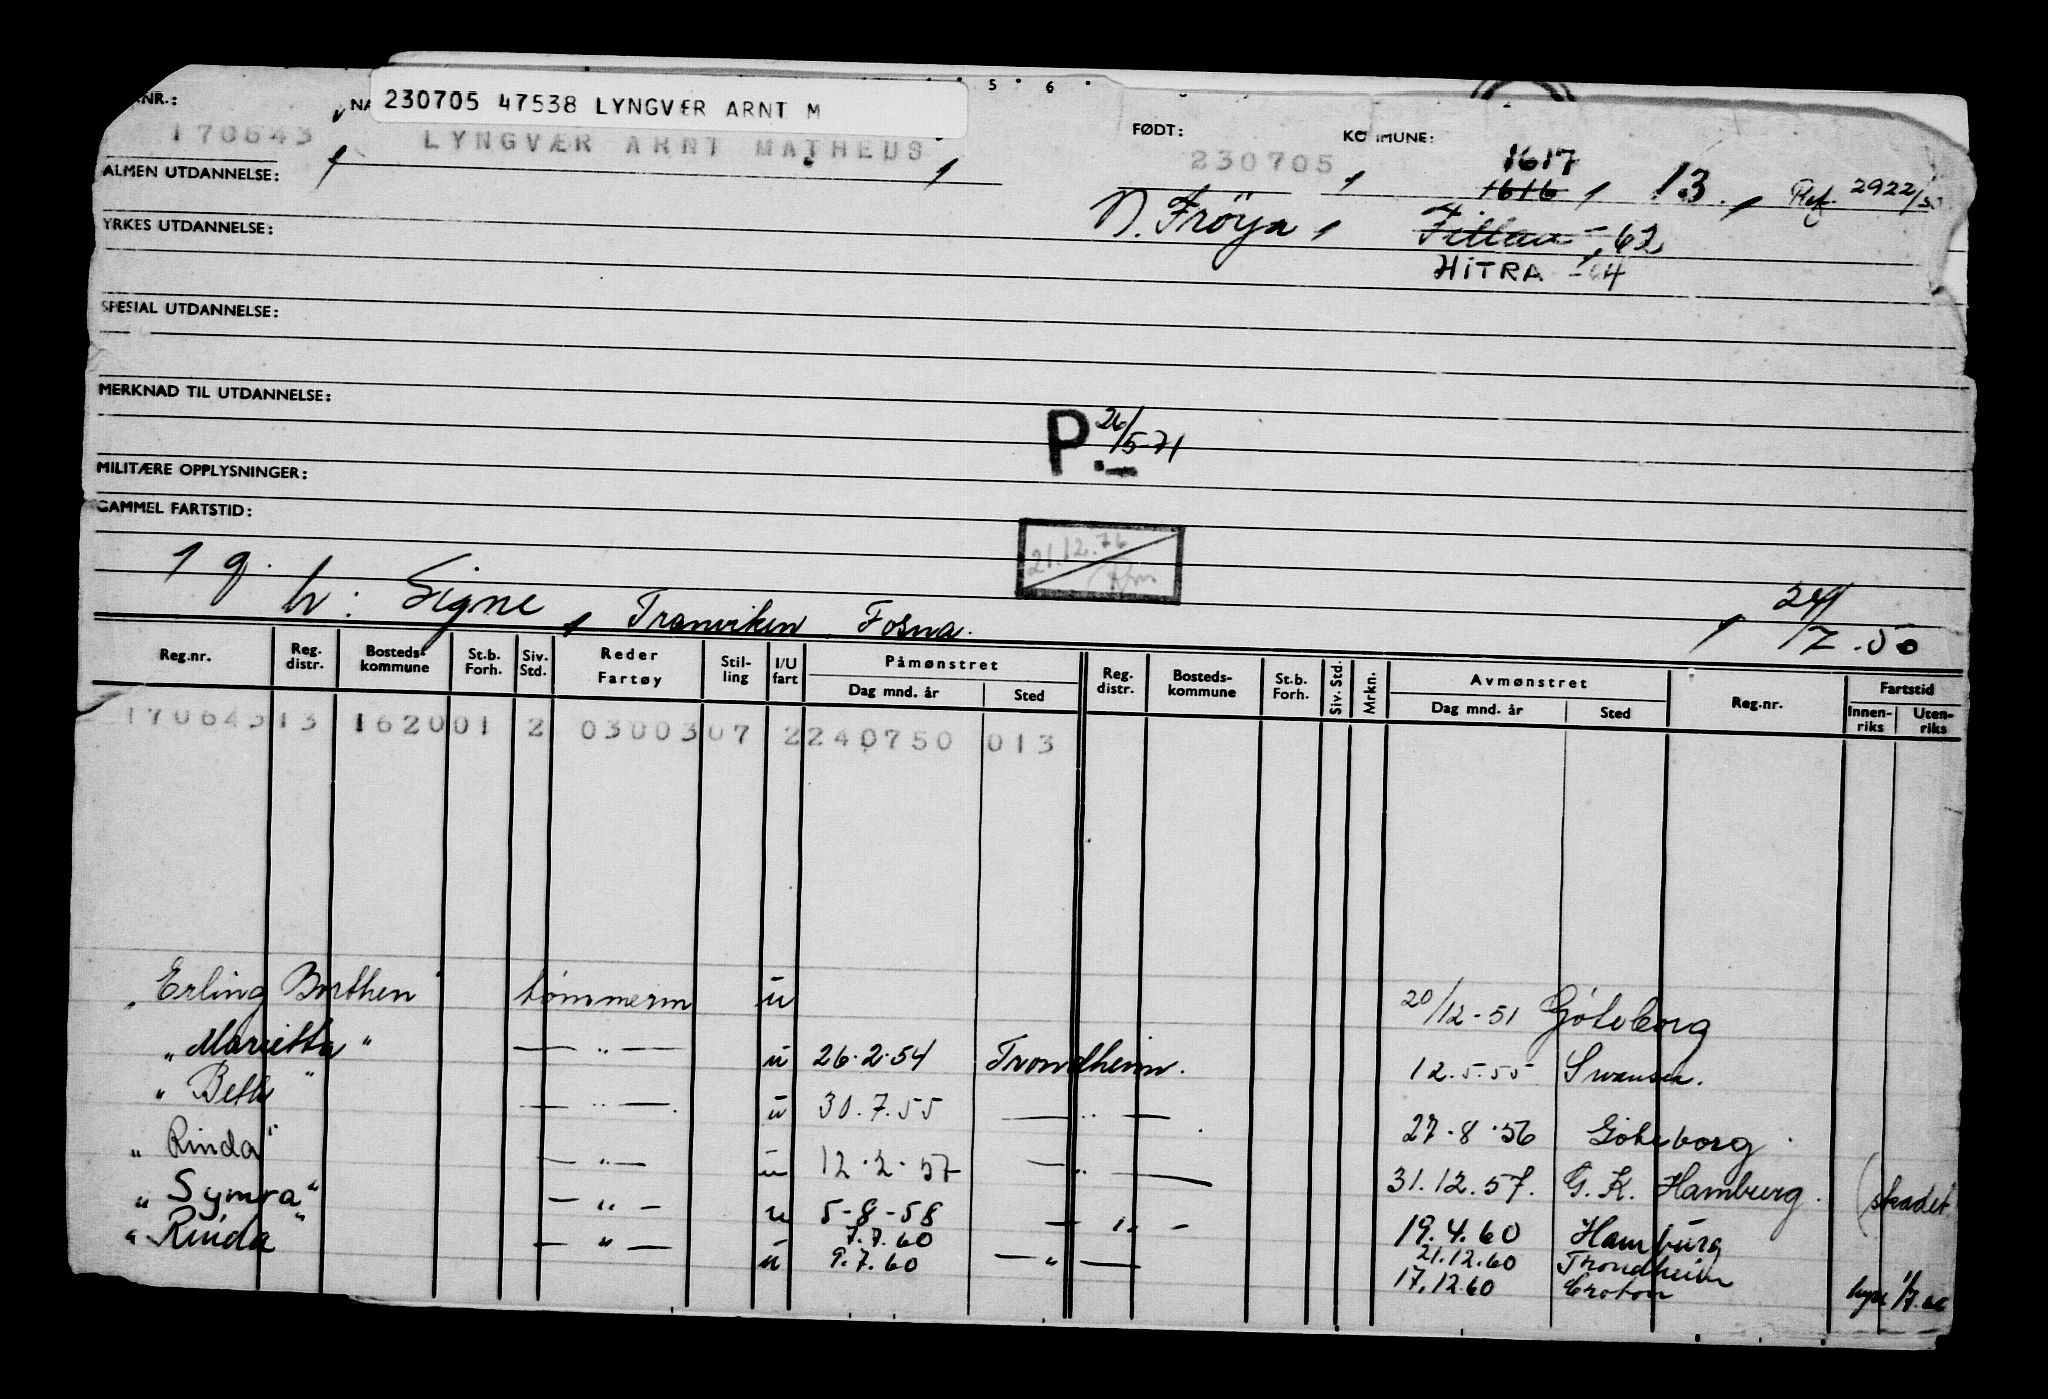 5 6
230705 47538 LYNGVÆR ARNT M
NR.: NA FØDT: KOMMUNE:
170643 LYNGVÆR ARNT MATHEUS 230705 1617
1616 13. 2922/50
ALMEN UTDANNELSE:
N. Fröya, Fillan -62
YRKES UTDANNELSE:
HITRA -64
SPESIAL UTDANNELSE:
MERKNAD TIL UTDANNELSE:
P. 26/5-71
MILITÆRE OPPLYSNINGER:
GAMMEL FARTSTID:
21.12.76
1 g. h: Signe, Tranviken Fosna. 24/7.50
Reg.nr. Reg. distr. Bosteds- kommune St.b. Forh. Siv. Std. Reder Fartøy Stil- ling I/U fart Påmønstret Dag mnd. år Sted Reg. distr. Bosteds- kommune St.b. Forh. Siv. Std. Mrkn. Avmønstret Dag mnd. år Sted Reg.nr. Fartstid Innen- riks Uten- riks
170643 13 1620 01 2 0300307 2 240750 013
Erling Borthen tømmerm u 20/12-51 Göteborg
"Marietta" — " — u 26.2.54 Trondheim. 12.5.55 Swansea.
"Beth" — " — u 30.7.55 — " — 27.8.56 Göteborg
"Rinda" — " — u 12.2.57 — " — 31.12.57. G. K. Hamburg. (skadet
"Symra" — " — u 5-8-58 — " — 19.4.60 Hamburg
7.7.60 21.12.60 Trondheim
"Rinda" — " — u 9.7.60 — " — 17.12.60 hyre 1/7.66